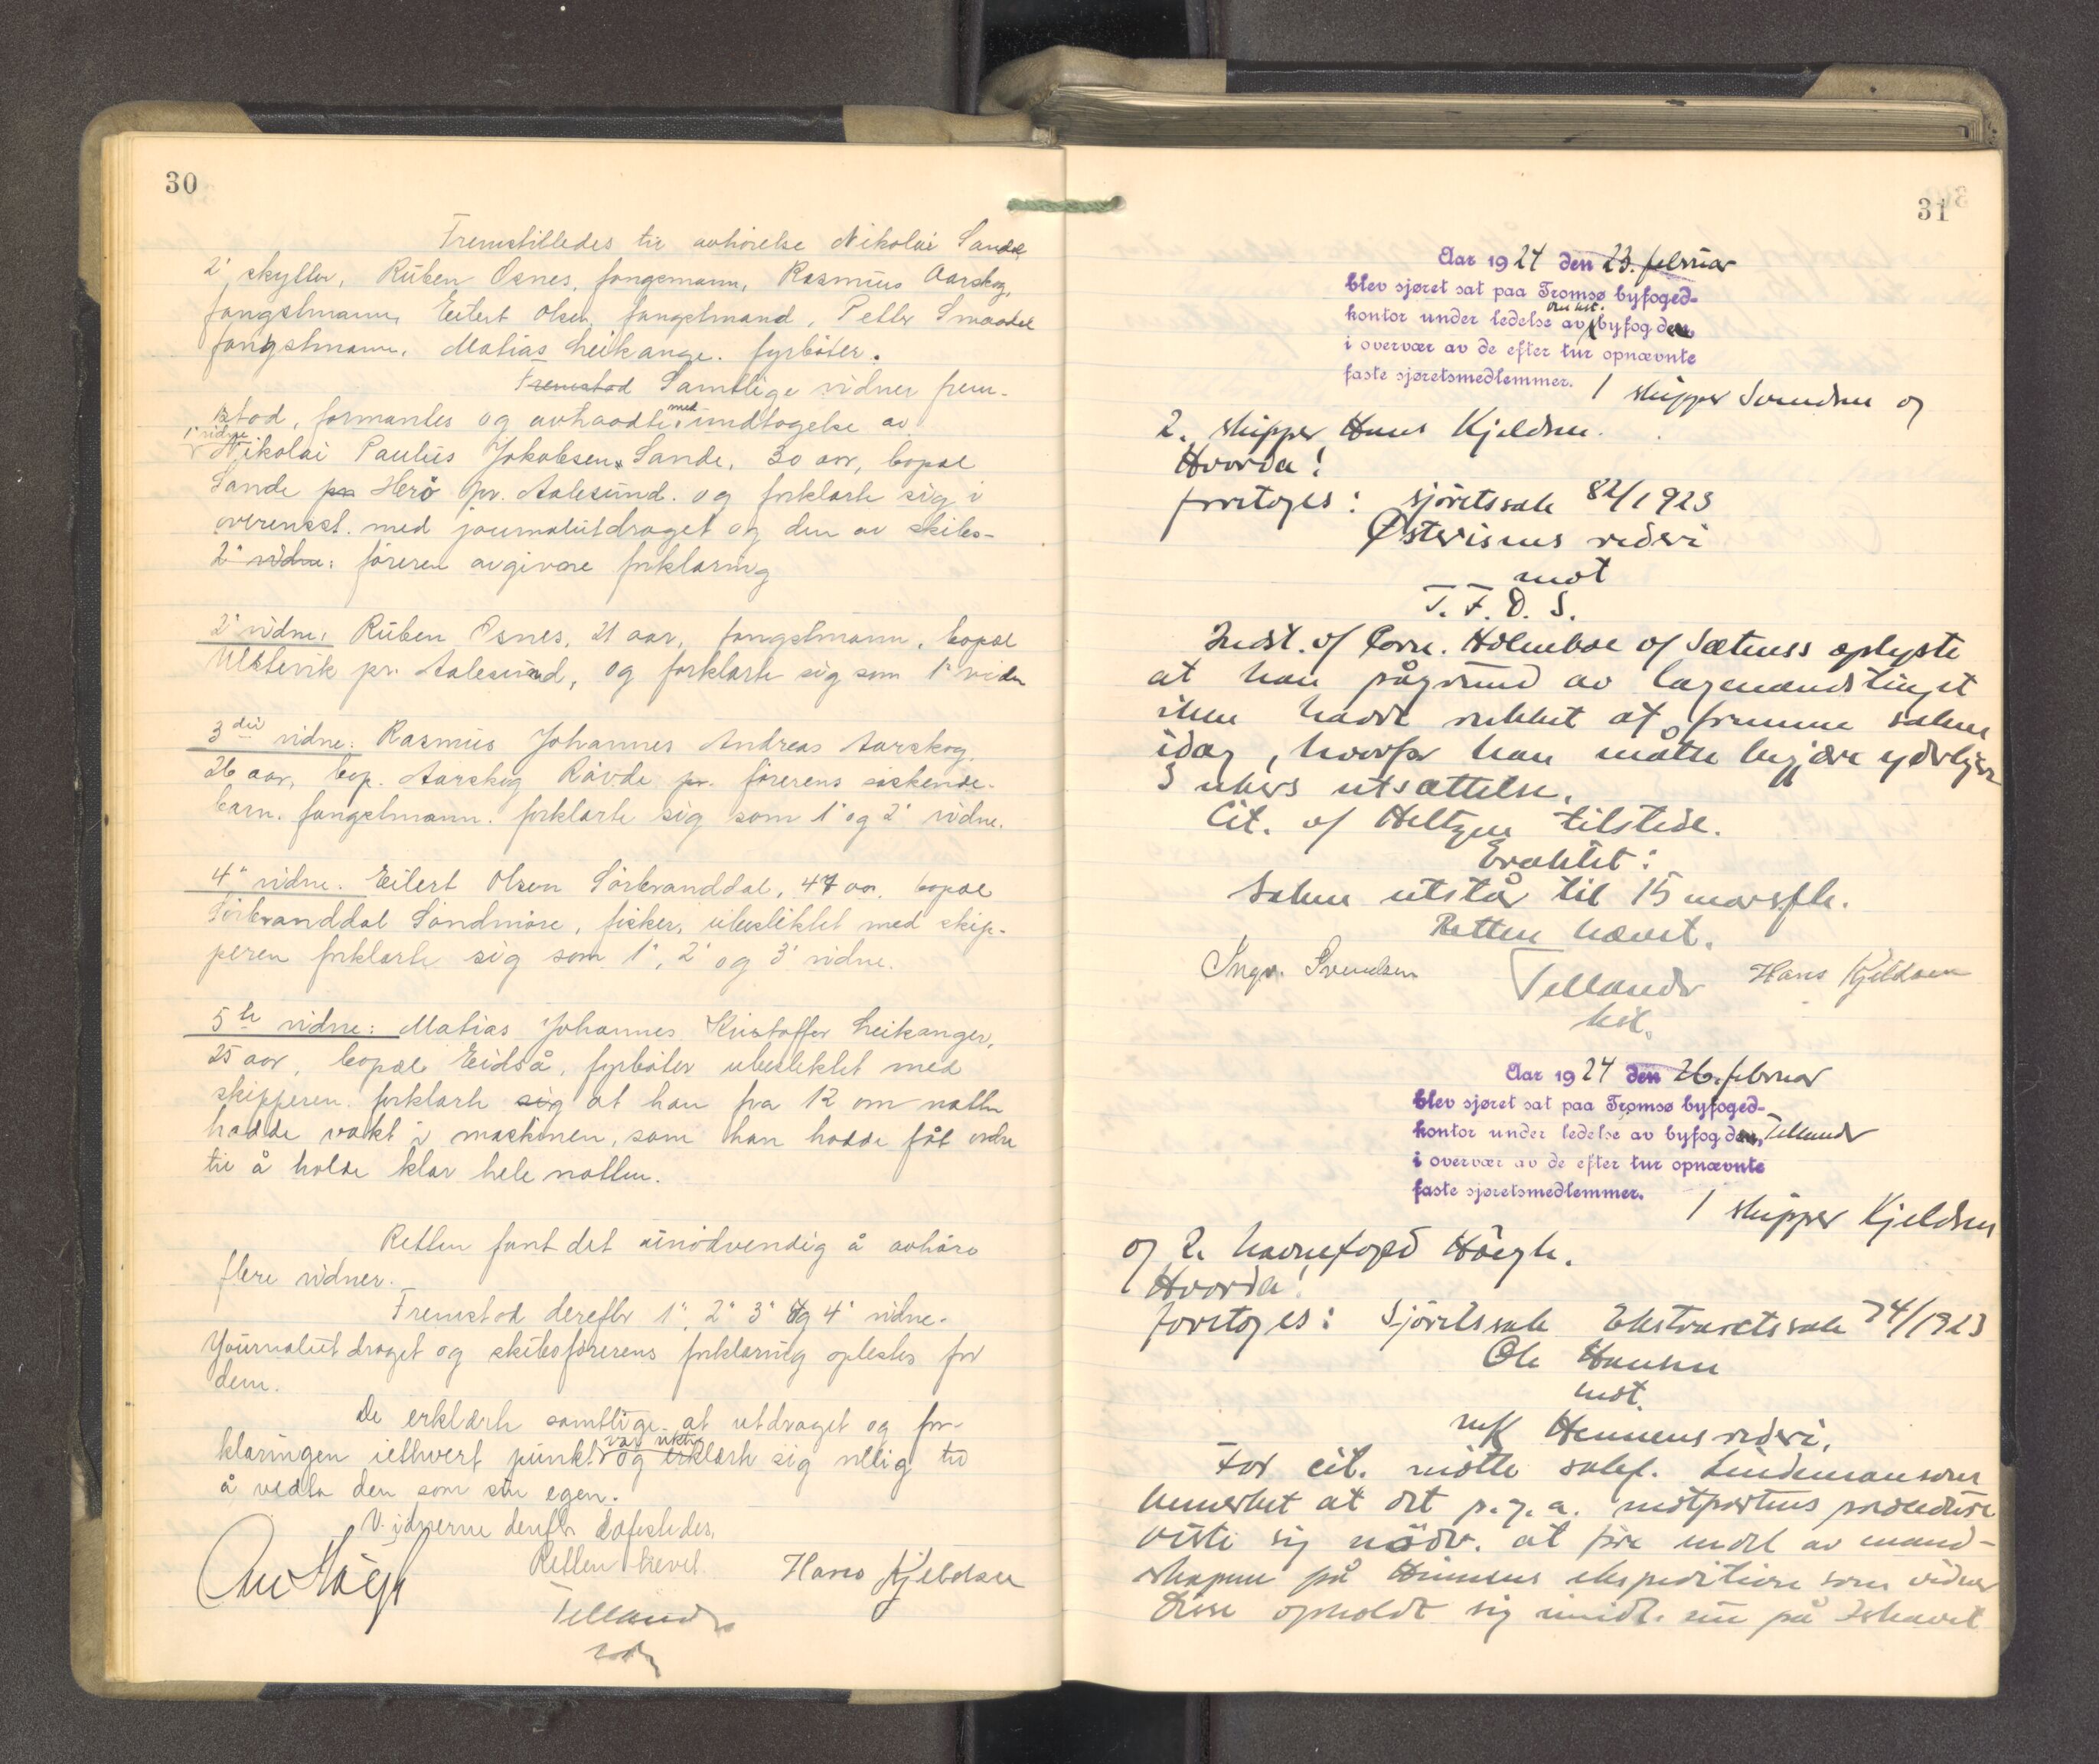 30
Fremstilledes til avhörelse Nikolai Sande
2' skytter, Ruben Osnes, fangstmann, Rasmus Aarskog,
fangstmann, Eilert Olsen, fangstmand, Petter
fangstmann, Matias Leikange. fyrböter.
Fremstod Samtlige vidner frem-
stod, formantes og avhaadte med undtagelse av
1' vidne
Nikolai Paulus Jakobsen Sande, 30 aar, bopæl
Sande pr Herö pr. Aalesund. og forklarte sig i
overensst. med journalutdraget og den av skibs-
2' vidne: föreren avgivne forklaring
2' vidne: Ruben Osnes, 21 aar, fangstmann, bopæl
Ulstevik pr. Aalesund, og forklarte sig som 1' vidne
3die vidne: Rasmus Johannes Andreas Aarskog,
26 aar, bop. Aarskog Rövde pr. förerens söskende-
barn. fangstmann. forklarte sig som 1' og 2' vidne.
4' vidne. Eilert Olsen Sörbranddal, 47 aar, bopæl
Sörbranddal Söndmöre, fisker, ubesliktet med skip-
peren forklarte sig som 1', 2' og 3' vidne.
5te vidne: Matias Johannes Kristoffer Leikanger,
25 aar, bopæl Eidså, fyrböter ubesliktet med
skipperen. forklarte sig at han fra 12 om natten
hadde vakt i maskinen, som han hadde fåt ordre
til å holde klar hele natten.
Retten fant det unödvendig å avhöre
flere vidner.
Fremstod derefter 1', 2' 3' og 4' vidne.
Journalutdraget og skibsförerens forklaring oplestes for
dem.
De erklærte samtlige at utdraget og for-
klaringen iethvert punkt var riktig og erklærte sig villig til
å vedta den som sin egen.
Vidnerne derefter edfestedes.
Retten hevet.
Hans Kjeldsen
Tellands
31
Aar 1924 den 23. februar
blev sjøret sat paa Tromsø byfoged-
kontor under ledelse av konst. byfogden
i overvær av de efter tur opnævnte
faste sjøretsmedlemmer. 1 skipper Svendsen og
2. skipper Hans Kjeldsen.
Hvorda!
foretoges: Sjöretssak 82/1923
Østerisens rederi
mot
T. F. D. S.
Indst. v/ Holmboe v/ Sætness oplyste
at han pågrund av lagmandstinget
ikke hadde rukket at fremme saken
idag, hvorfor han måtte begjære yderligere
3 ukers utsættelse.
Cit. v/ Heltzen tilstede.
Besluttet:
Saken utstår til 15 mars.
Retten hævet.
Ingv. Svendsen Tellands Hans Kjeldsen
kst.
Aar 1924 den 26. februar
blev sjøret sat paa Tromsø byfoged-
kontor under ledelse av byfogden, Tellands
i overvær av de efter tur opnævnte
faste sjøretsmedlemmer. 1 skipper Kjeldsen
og 2. havnefoged Höegh.
Hvorda!
foretoges: Sjöretssak Ekstraretssak 74/1923
Ole Hansen
mot.
m/k Hennens rederi.
For cit. mötte sakf. Lindeman som
bemerket at det p.g.a. motpartens procedure
viste sig nödv. at före endel av mand-
skapene på Hinnens ekspeditione som vidner
Disse opholdt sig imidl. nu på Ishavet